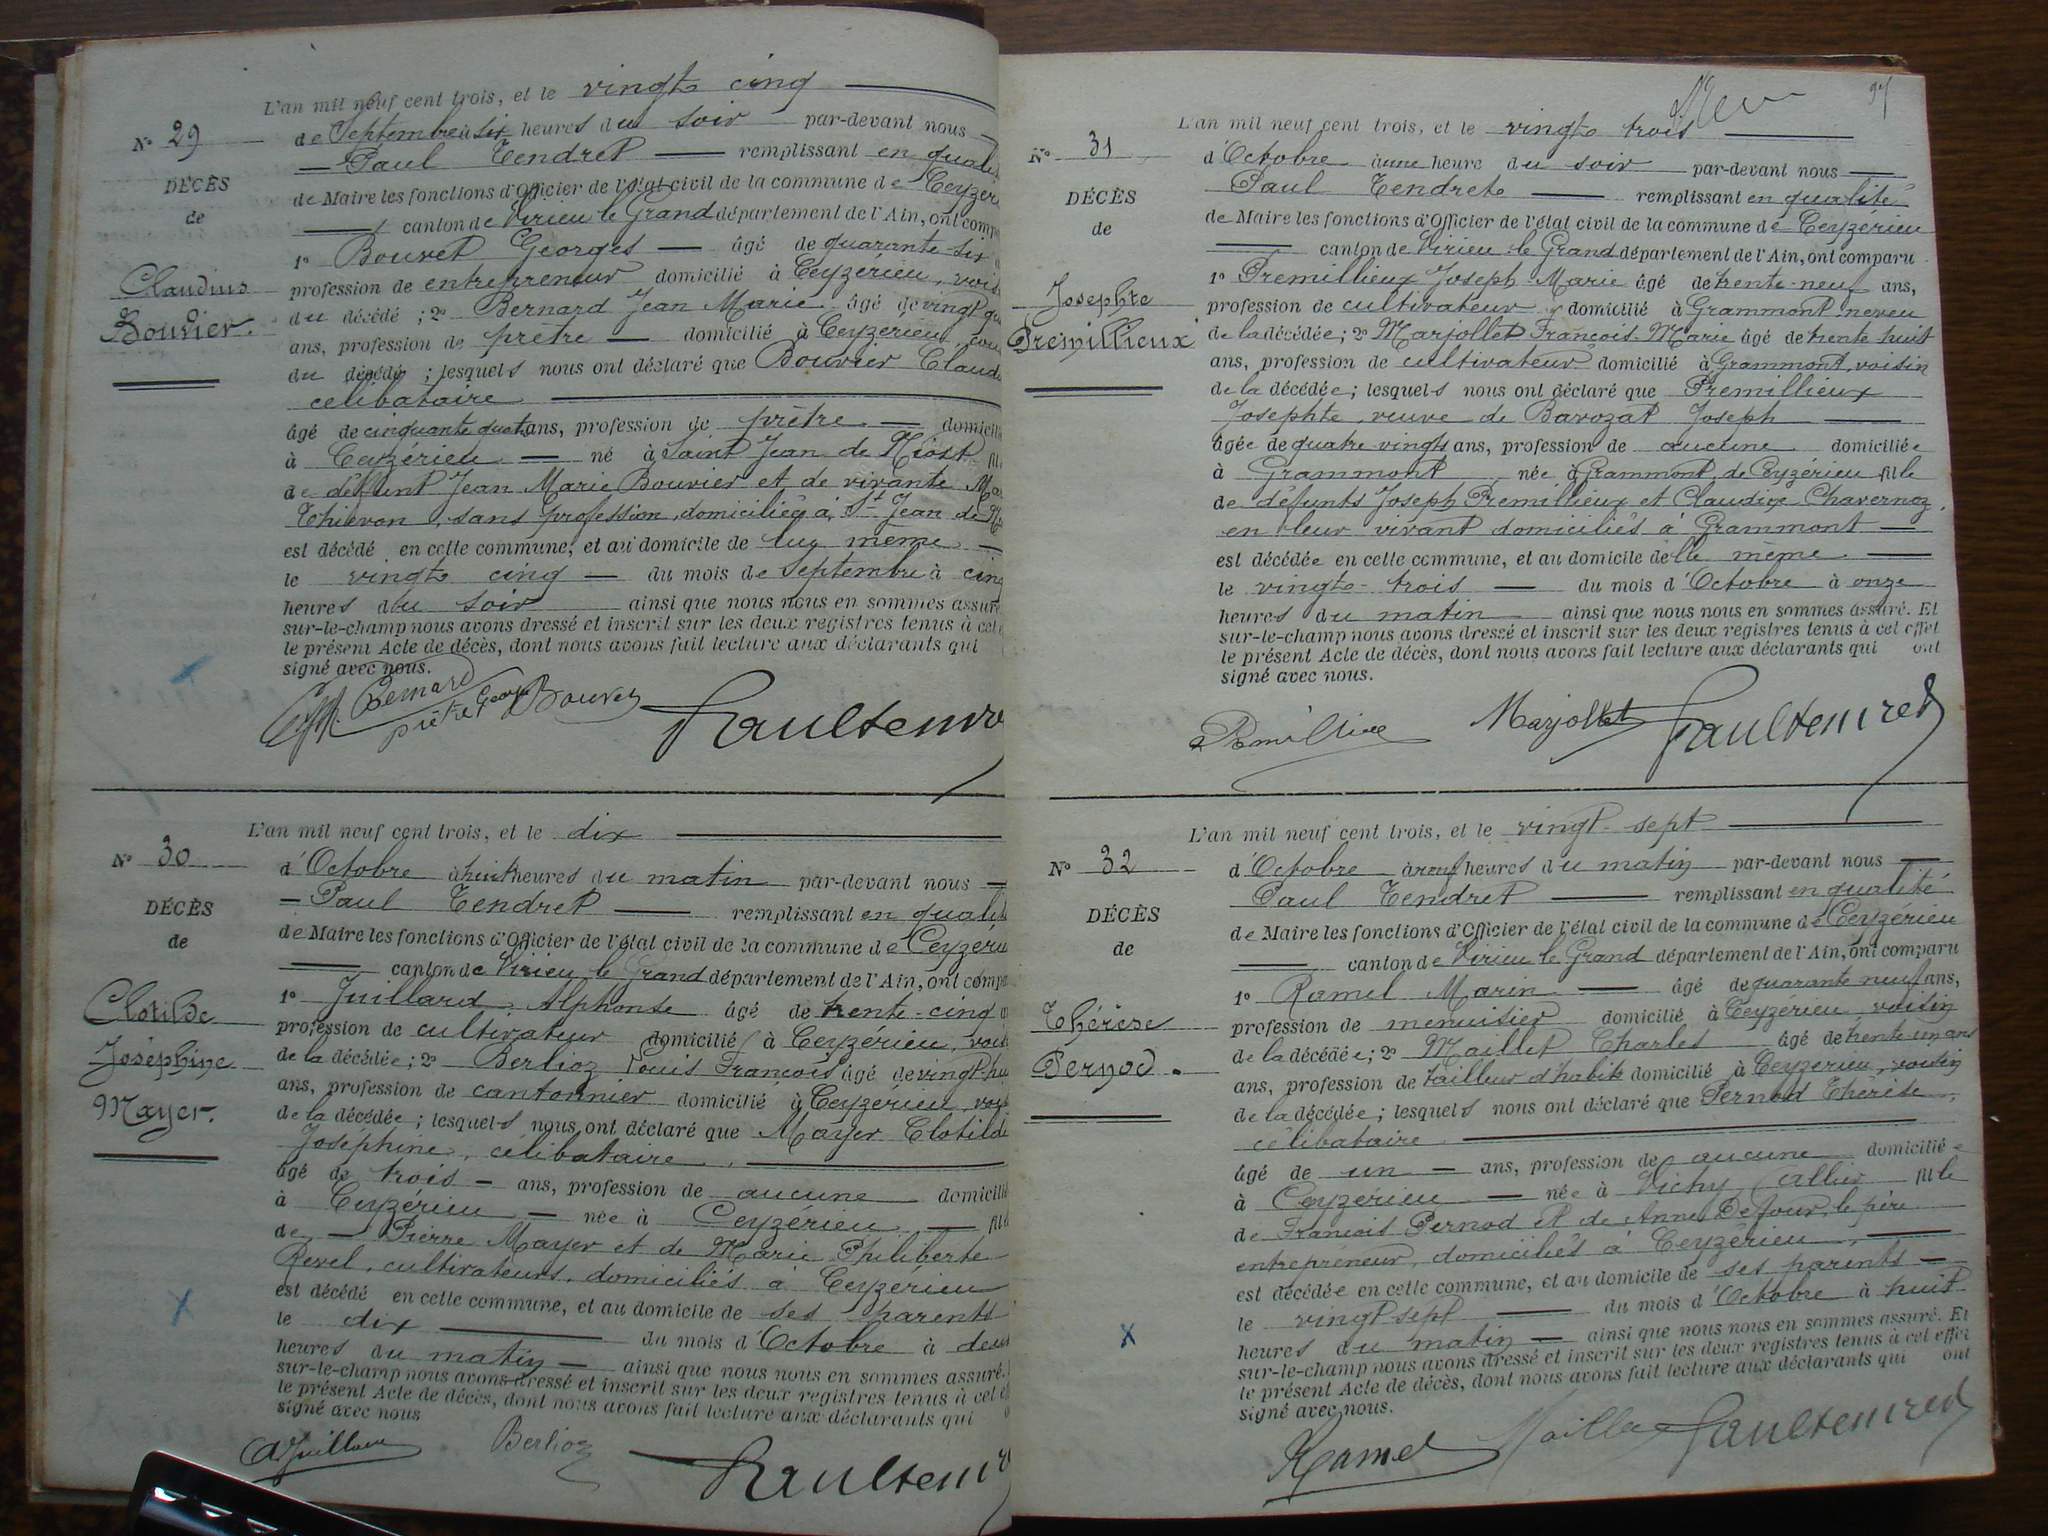 L'an mil neuf cent trois, et le vingt cinq
N° 29
de Septembre à six heures du soir par-devant nous
Paul Tendret remplissant en qualité
DÉCÈS
de Maire les fonctions d'Officier de l'état civil de la commune de Ceyzérieu
de
canton de Virieu le Grand département de l'Ain, ont comp
1° Bouvet Georges âgé de quarante six
Claudius
profession de entrepreneur domicilié à Ceyzérieu, voisin
Bouvier.
du décédé ; 2° Bernard Jean Marie âgé de vingt qua
ans, profession de prêtre domicilié à Ceyzérieu, cou
du décédé ; lesquels nous ont déclaré que Bouvier Claud
célibataire
âgé de cinquante quatre ans, profession de prêtre domicili
à Ceyzérieu né à Saint Jean de Niost fil
de défunt Jean Marie Bouvier et de vivante Ma
Thievon, sans profession, domiciliée à St Jean de N
est décédé en cette commune, et au domicile de lui même
le vingt cinq du mois de Septembre à cinq
heures du soir ainsi que nous nous en sommes assuré
sur-le-champ nous avons dressé et inscrit sur les deux registres tenus à cet
le présent Acte de décès, dont nous avons fait lecture aux déclarants qui
signé avec nous.
Bernard
prêtre
Georges Bouvet
Paul Tendret
L'an mil neuf cent trois, et le dix
N° 30
d'Octobre à huit heures du matin par-devant nous
Paul Tendret remplissant en qualité
DÉCÈS
de Maire les fonctions d'Officier de l'état civil de la commune de Ceyzérieu
de
canton de Virieu le Grand département de l'Ain, ont compa
1° Juillard Alphonse âgé de trente-cinq
Clotilde
profession de cultivateur domicilié à Ceyzérieu, voisin
Joséphine
de la décédée ; 2° Berlioz Louis François âgé de vingt hui
Mayer.
ans, profession de cantonnier domicilié à Ceyzérieu, vois
de la décédée ; lesquels nous ont déclaré que Mayer Clotilde
Joséphine, célibataire,
âgé de trois ans, profession de aucune domicili
à Ceyzérieu née à Ceyzérieu fil
de Pierre Mayer et de Marie Philiberte
Revel, cultivateurs, domiciliés à Ceyzérieu
est décédé en cette commune, et au domicile de ses parents
le dix du mois d'Octobre à deux
heures du matin ainsi que nous nous en sommes assuré.
sur-le-champ nous avons dressé et inscrit sur les deux registres tenus à cet
le présent Acte de décès, dont nous avons fait lecture aux déclarants qui
signé avec nous
A Juillard Berlioz Paul Tendret
97
L'an mil neuf cent trois, et le vingt trois
N° 31
d'Octobre à une heure du soir par-devant nous
Paul Tendret remplissant en qualité
DÉCÈS
de Maire les fonctions d'Officier de l'état civil de la commune de Ceyzérieu
de
canton de Virieu-le-Grand département de l'Ain, ont comparu
1° Premillieux Joseph-Marie âgé de trente-neuf ans,
Josephte
profession de cultivateur domicilié à Grammont neveu
Premillieux
de la décédée ; 2° Marjollet François-Marie âgé de trente huit
ans, profession de cultivateur domicilié à Grammont, voisin
de la décédée ; lesquels nous ont déclaré que Premillieux
Josephte, veuve de Barozat Joseph
âgée de quatre vingts ans, profession de aucune domiciliée
à Grammont, née à Grammont de Ceyzérieu fille
de défunts Joseph Premillieux et Claudine Chavernoz,
en leur vivant domiciliés à Grammont
est décédée en cette commune, et au domicile d'elle même
le vingt-trois du mois d'Octobre à onze
heures du matin ainsi que nous nous en sommes assuré. Et
sur-le-champ nous avons dressé et inscrit sur les deux registres tenus à cet effet
le présent Acte de décès, dont nous avons fait lecture aux déclarants qui ont
signé avec nous.
Marjollet Paul Tendret
L'an mil neuf cent trois, et le vingt-sept
N° 32
d'Octobre à neuf heures du matin par-devant nous
Paul Tendret remplissant en qualité
DÉCÈS
de Maire les fonctions d'Officier de l'état civil de la commune de Ceyzérieu
de
canton de Virieu le Grand département de l'Ain, ont comparu
1° Ramel Marin âgé de quarante neuf ans,
Thérèse
profession de menuisier domicilié à Ceyzérieu, voisin
Pernod.
de la décédée ; 2° Maillet Charles âgé de trente un ans
ans, profession de tailleur d'habits domicilié à Ceyzérieu, voisin
de la décédée ; lesquels nous ont déclaré que Pernod Thérèse,
célibataire
âgé de un ans, profession de aucune domiciliée
à Ceyzérieu née à Vichy (Allier) fille
de François Pernod et de Anne Dejour, le père
entrepreneur, domiciliés à Ceyzérieu,
est décédée en cette commune, et au domicile de ses parents
le vingt-sept du mois d'Octobre à huit
heures du matin ainsi que nous nous en sommes assuré. Et
sur-le-champ nous avons dressé et inscrit sur les deux registres tenus à cet effet
le présent Acte de décès, dont nous avons fait lecture aux déclarants qui ont
signé avec nous.
Ramel Maillet Paul Tendret